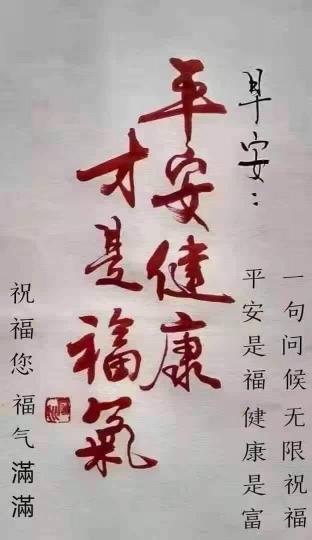 早安：
平安健康
才是福氣
一句问候无限祝福
平安是福健康是富
祝福您福气滿滿